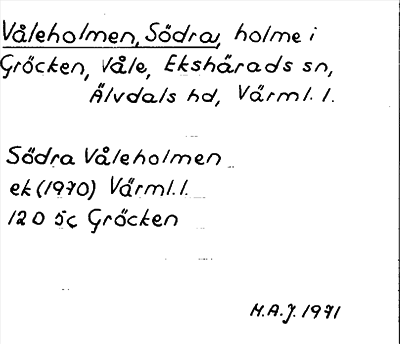 Våleholmen, Södra, holme i
Gröcken, Våle, Ekshärads sn,
Älvdals hd, Värml. l.
Södra Våleholmen
ek (1970) Värml. l.
12 D 5c Gröcken
H.A.J. 1971